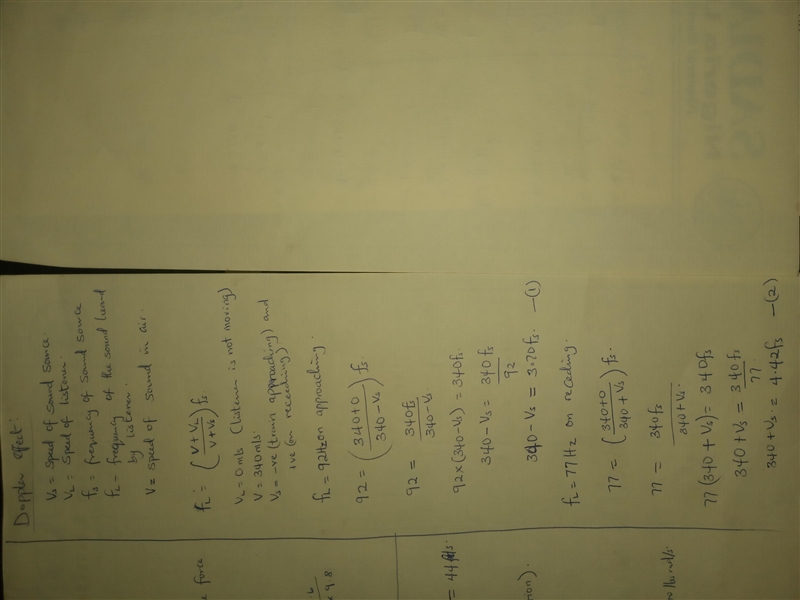 Doppler effect:
Vs = Speed of sound source.
VL = Speed of listener.
fs = frequency of sound source
fL = frequency of the sound heard
by listener.
V = Speed of sound in air.
fL = (V + VL / V + Vs) fs
VL = 0 m/s (listener is not moving)
V = 340 m/s
Vs = -ve (train approaching) and
+ve (on receeding).
fL = 92Hz on approaching.
92 = (340+0 / 340 - Vs) fs
92 = 340fs / 340 - Vs
92 x (340 - Vs) = 340fs
340 - Vs = 340 fs / 92
340 - Vs = 3.70fs. —(1)
fL = 77Hz on receding.
77 = (340+0 / 340 + Vs) fs.
77 = 340fs / 340 + Vs.
77 (340 + Vs) = 340fs
340 + Vs = 340 fs / 77
340 + Vs = 4.42fs —(2)
force
9.8